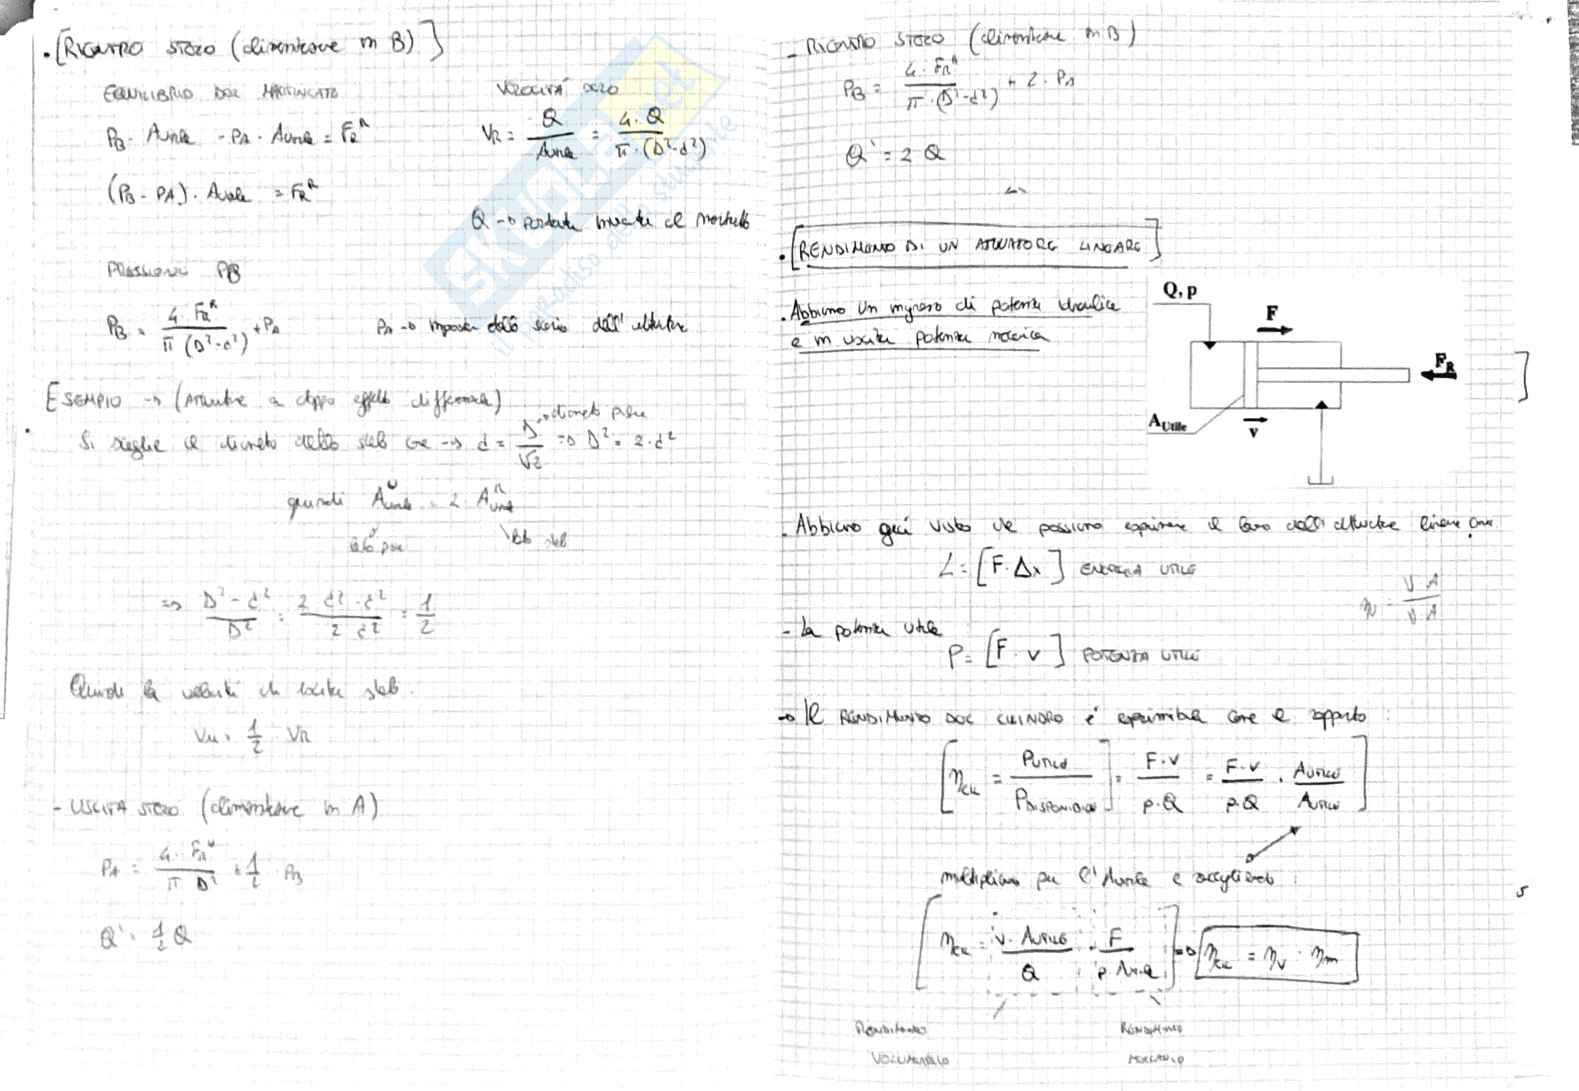 • [RIENTRO STELO (alimentazione in B)]
EQUILIBRIO DEL MARTINETTO
P_B · A_utile - P_A · A_utile = F_R^R
(P_B - P_A) · A_utile = F_R^R
VELOCITÀ STELO
V_R = Q / A_utile = 4 · Q / π · (D² - d²)
Q → portata inviata al martinetto
PRESSIONE P_B
P_B = 4 · F_R^R / π (D² - d²) + P_A
P_A → imposta dallo scarico dell'attuatore
ESEMPIO → (Attuatore a doppio effetto differenziale)
Si sceglie il diametro dello stelo che → d = D / √2 ⇒ D² = 2 · d²
→ diametro pistone
quindi A_utile^U = 2 · A_utile^R
lato pistone
lato stelo
⇒ D² - d² / D² = 2 d² - d² / 2 d² = 1 / 2
Quindi la velocità di uscita stelo:
V_U = 1/2 V_R
- USCITA STELO (alimentazione in A)
P_A = 4 · F_R^U / π D² + 1/2 P_B
Q' = 1/2 Q
- RIENTRO STELO (alimentazione in B)
P_B = 4 · F_R^R / π · (D² - d²) + 2 · P_A
Q' = 2 Q
• [RENDIMENTO DI UN ATTUATORE LINEARE]
• Abbiamo un ingresso di potenza idraulica
e in uscita potenza meccanica
Q, p
F
F_R
A_Utile
v
- Abbiamo già visto che possiamo esprimere il lavoro dell'attuatore lineare come
L = [F · Δx] ENERGIA UTILE
η = V A / V A
- La potenza utile
P = [F · v] POTENZA UTILE
→ Il RENDIMENTO DEL CILINDRO è esprimibile come il rapporto:
[η_cil = P_UTILE / P_DISPONIBILE] = F · v / p · Q = F · v / p · Q · A_UTILE / A_UTILE]
moltiplicamo per l'A_utile e raccogliendo:
[η_cil = v · A_UTILE / Q · F / p A_UTILE] ⇒ η_cil = η_v · η_m
RENDIMENTO
VOLUMETRICO
RENDIMENTO
MECCANICO
5
SKUOLA.net
il paradiso dello studente